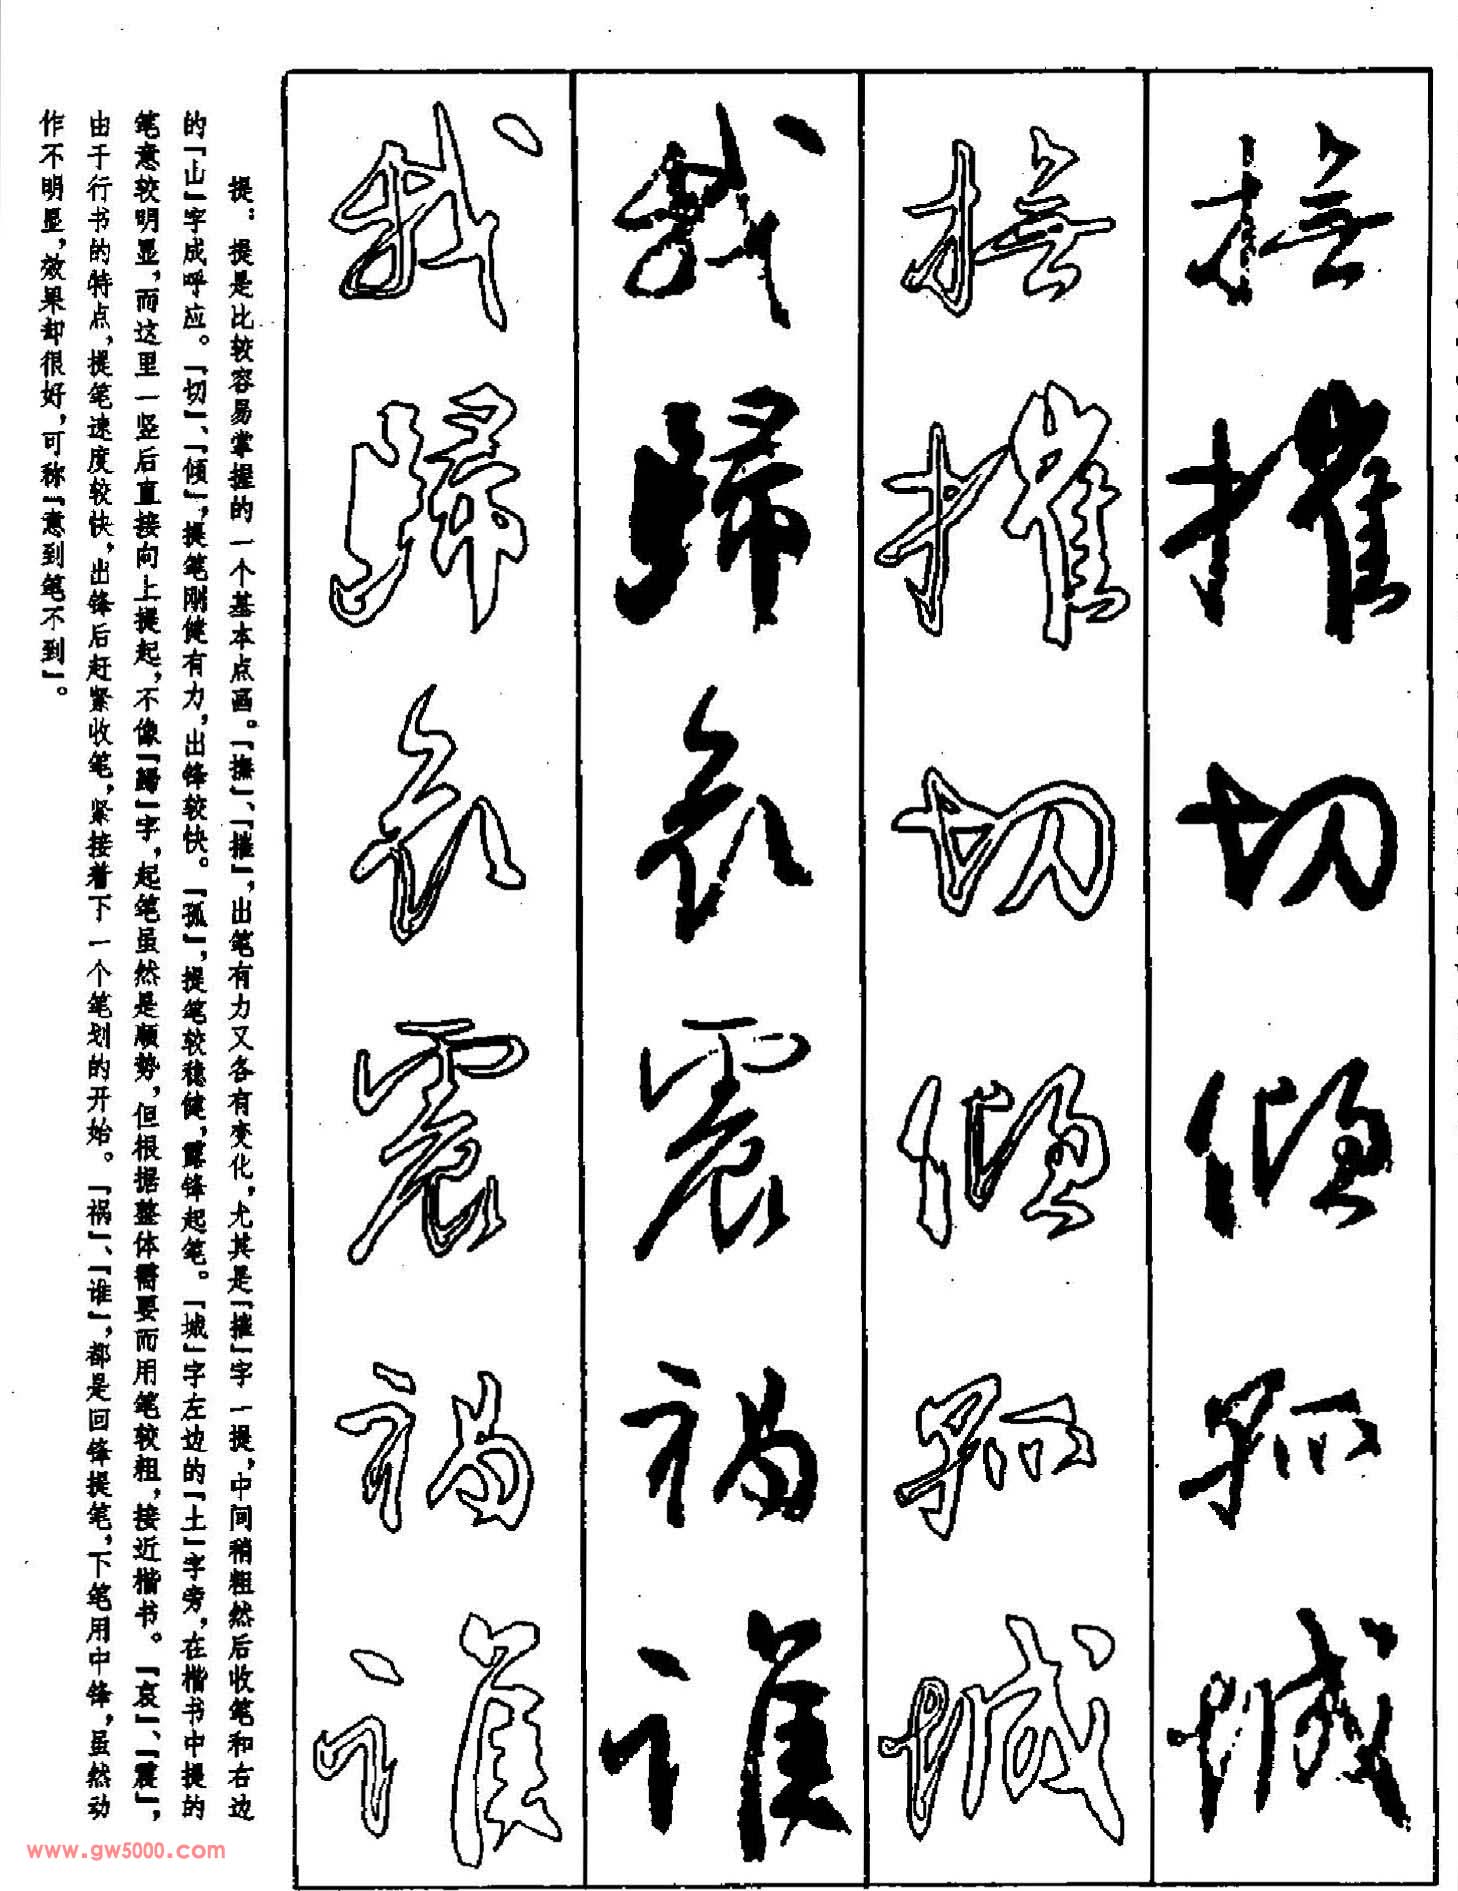 抚
摧
切
倾
孤
城
抚
摧
切
倾
孤
城
我
歸
哀
震
祸
谁
我
歸
哀
震
祸
谁
提：提是比较容易掌握的一个基本点画。「撫」、「摧」，出笔有力又各有变化，尤其是「摧」字一提，中间稍粗然后收笔和右边
的「山」字成呼应。「切」、「倾」，提笔刚健有力，出锋较快。「孤」，提笔较稳健，露锋起笔。「城」字左边的「土」字旁，在楷书中提的
笔意较明显，而这里一竖后直接向上提起，不像「歸」字，起笔虽然是顺势，但根据整体需要而用笔较粗，接近楷书。「哀」、「震」，
由于行书的特点，提笔速度较快，出锋后赶紧收笔，紧接着下一个笔划的开始。「祸」、「谁」，都是回锋提笔，下笔用中锋，虽然动
作不明显，效果却很好，可称「意到笔不到」。
www.gw5000.com